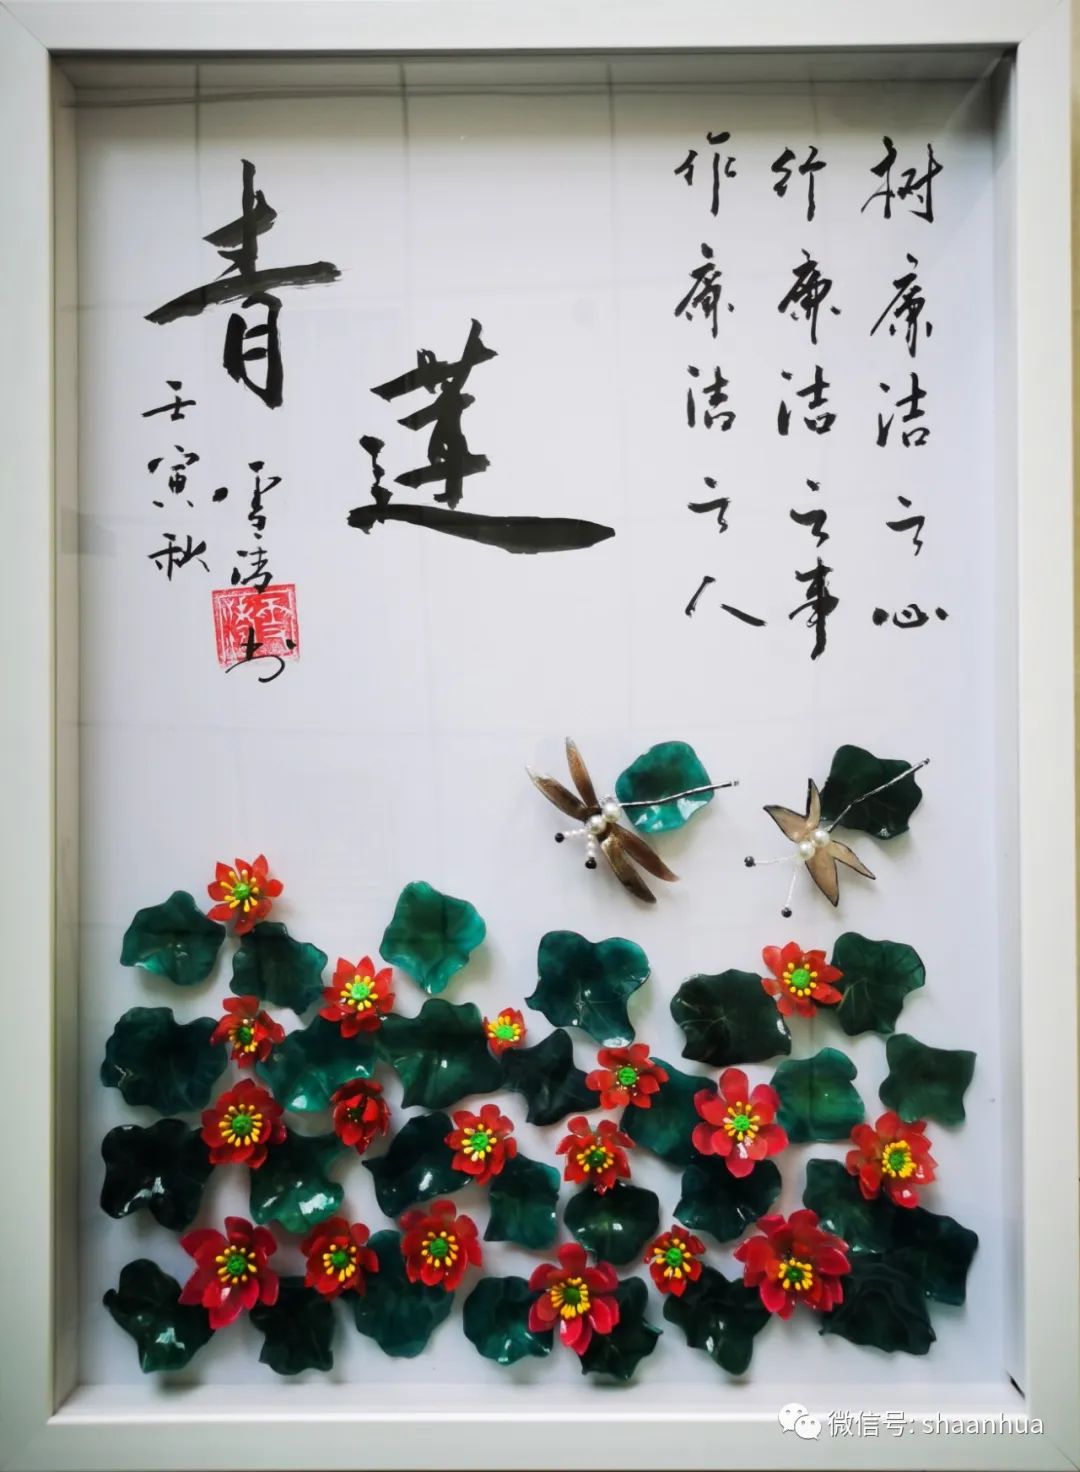 树廉洁之心
行廉洁之事
作廉洁之人
青莲
壬寅秋
雪涛书
微信号: shaanhua